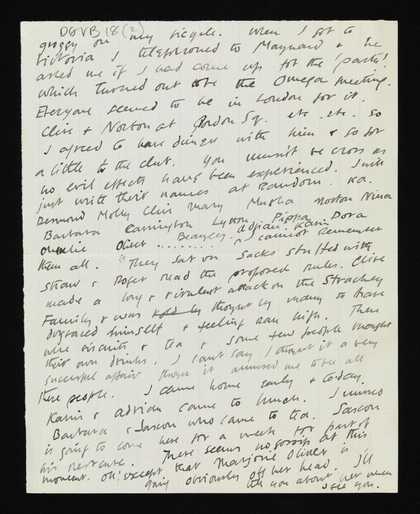 DGVB 18 (2)
groggy on my bicycle. When I got to
Victoria I telephoned to Maynard & he
asked me if I had come up for the 'party'!
which turned out to be the Omega meeting.
Everyone seemed to be in London for it.
Clive & Norton at Gordon Sq. etc. etc. So
I agreed to have dinner with him & so for
a little to the club. You mustn't be cross as
no evil effects have been experienced. I will
just write their names at random.
Desmond Molly Clive Mary Norton Nina
Barbara Carrington Lytton Pippa Dora
Oliver Beasley Adrian Karin
I cannot remember
them all. They sat on sacks stuffed with
straw & Roger read the proposed rules. Clive
made a long & virulent attack on the Strachey
Family & was thought by many to have
disgraced himself & feeling ran high. There
were biscuits & tea & some few people brought
their own drinks. I can't say I thought it a very
successful affair though it amused me to see all
these people. I came home early & today
Karin & Adrian came to lunch. James
Barbara & Saxon who came to tea. Saxon
is going to come here for a week for part of
his rest cure. There seems no gossip at this
moment. Oh! except that Marjorie Olivier is
going obviously off her head. I'll
tell you about her when
I see you.